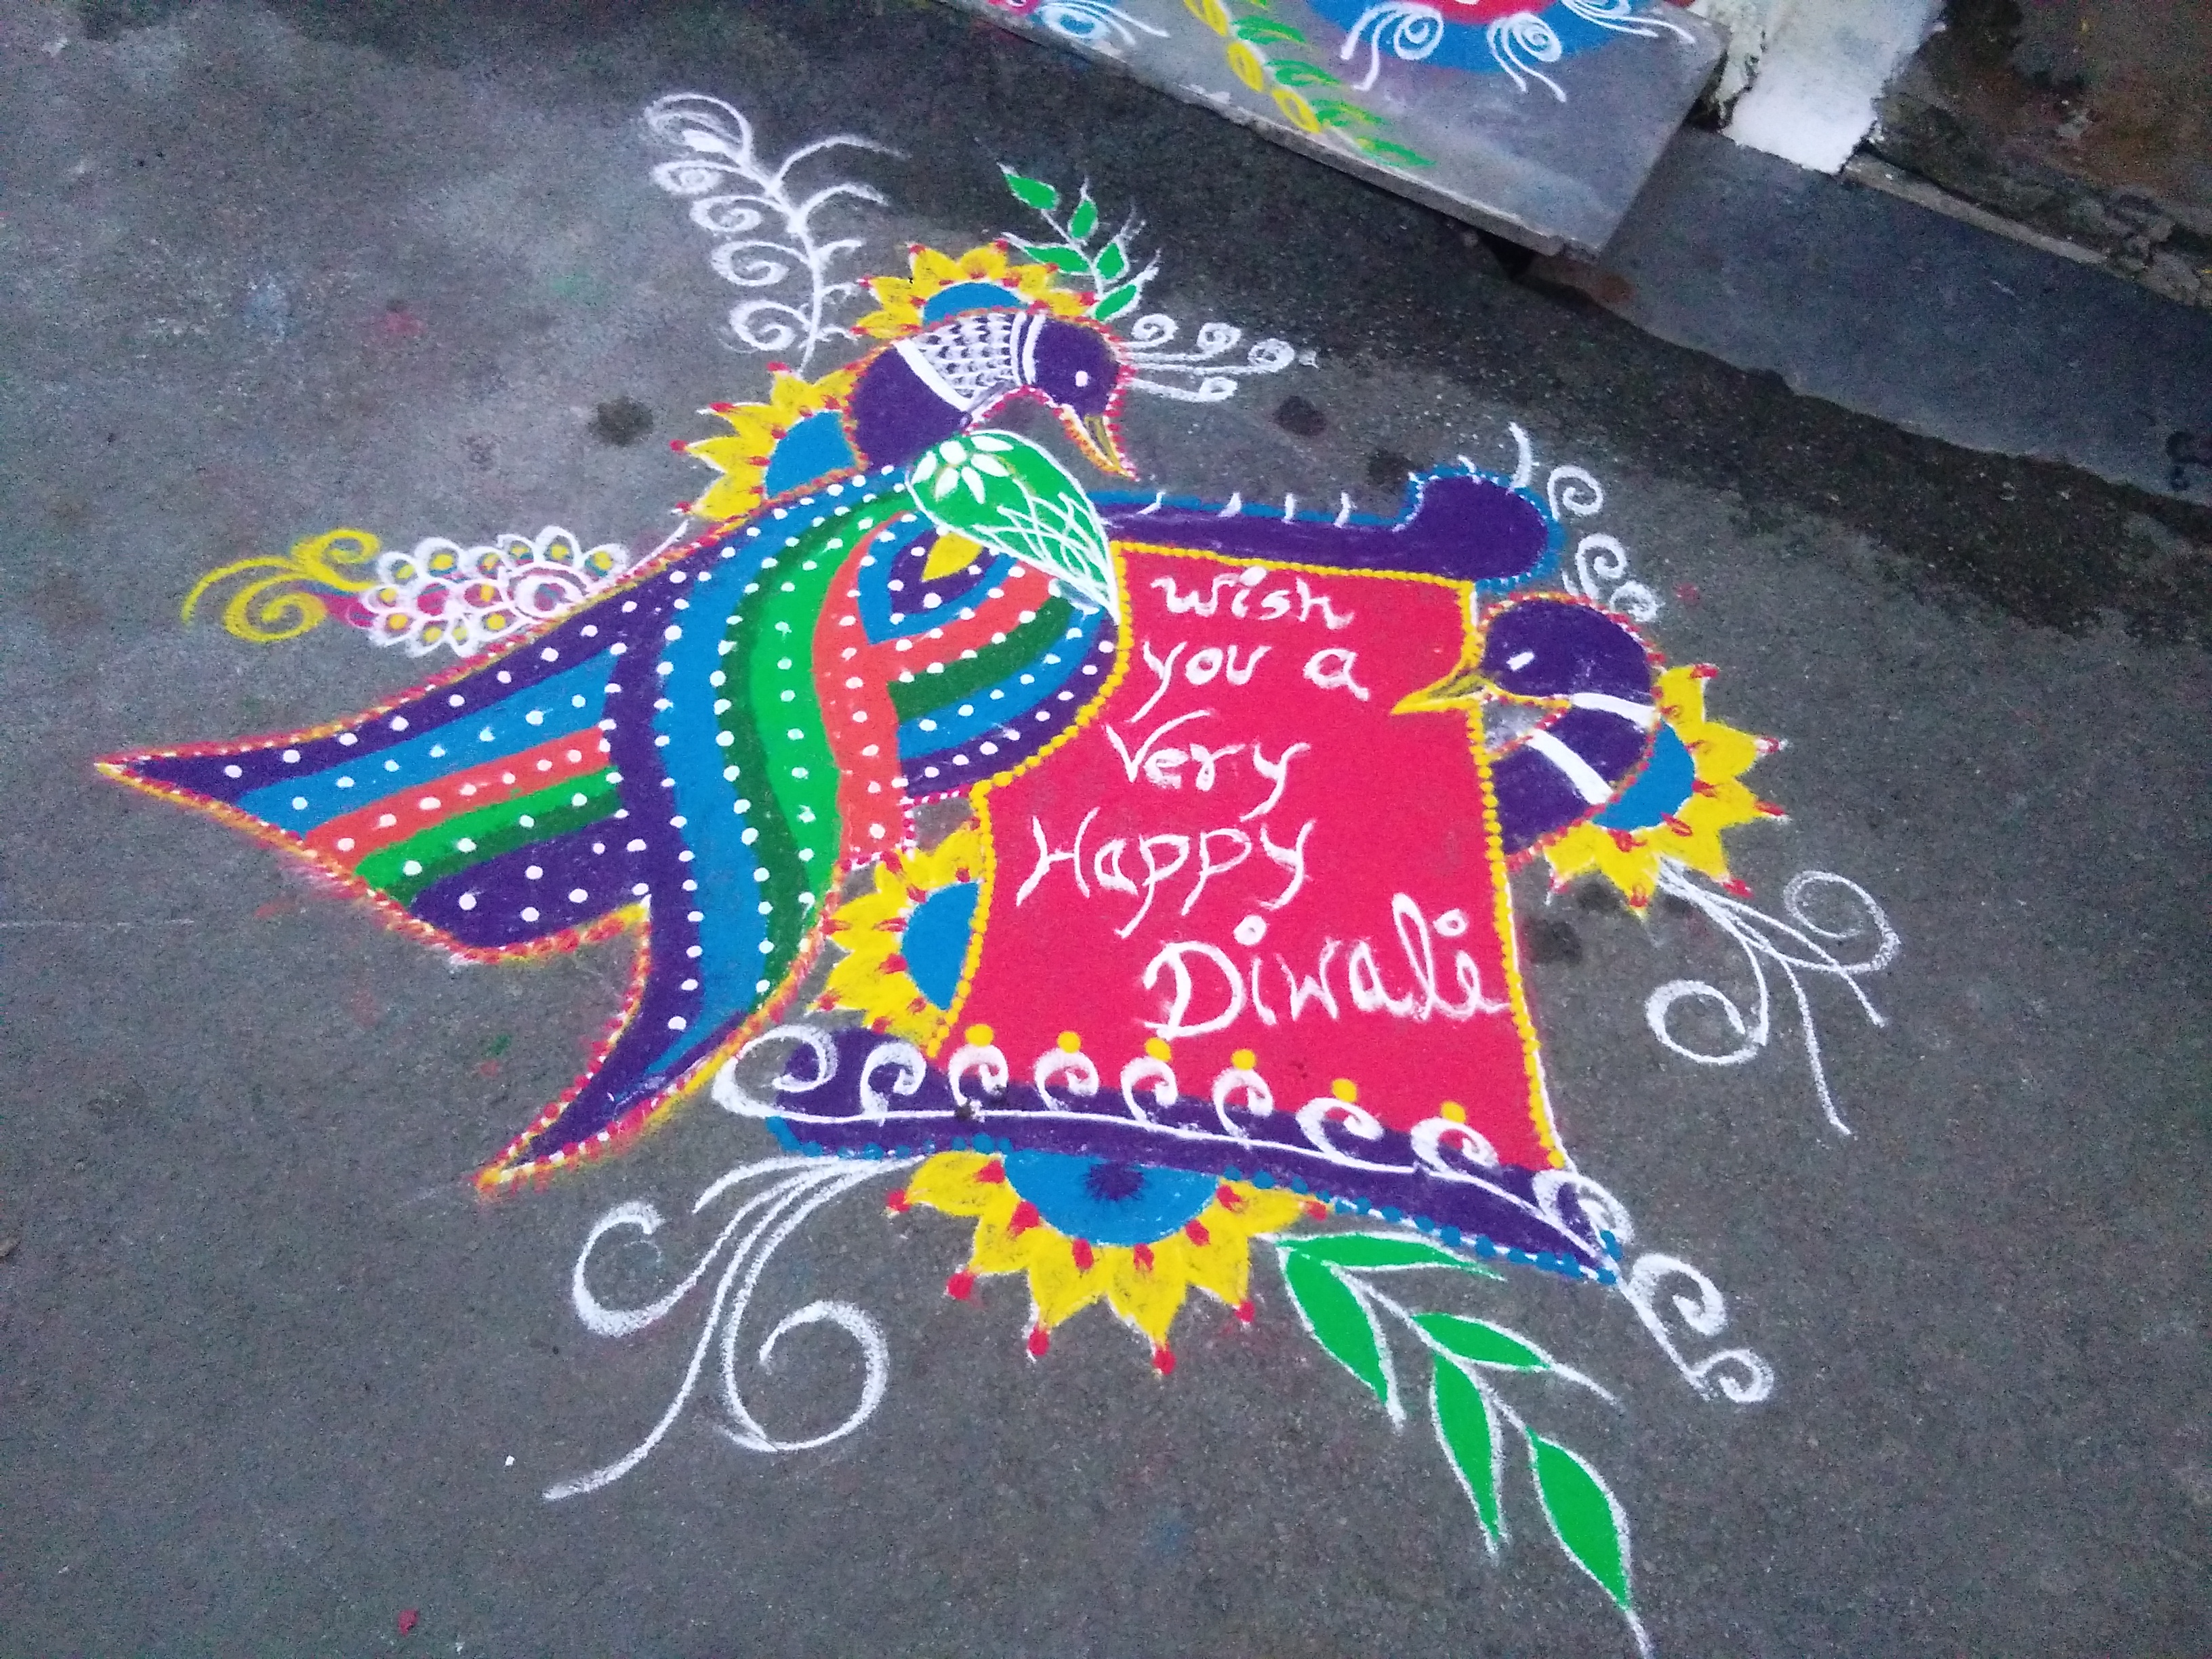 wish
you a
Very
Happy
Diwali